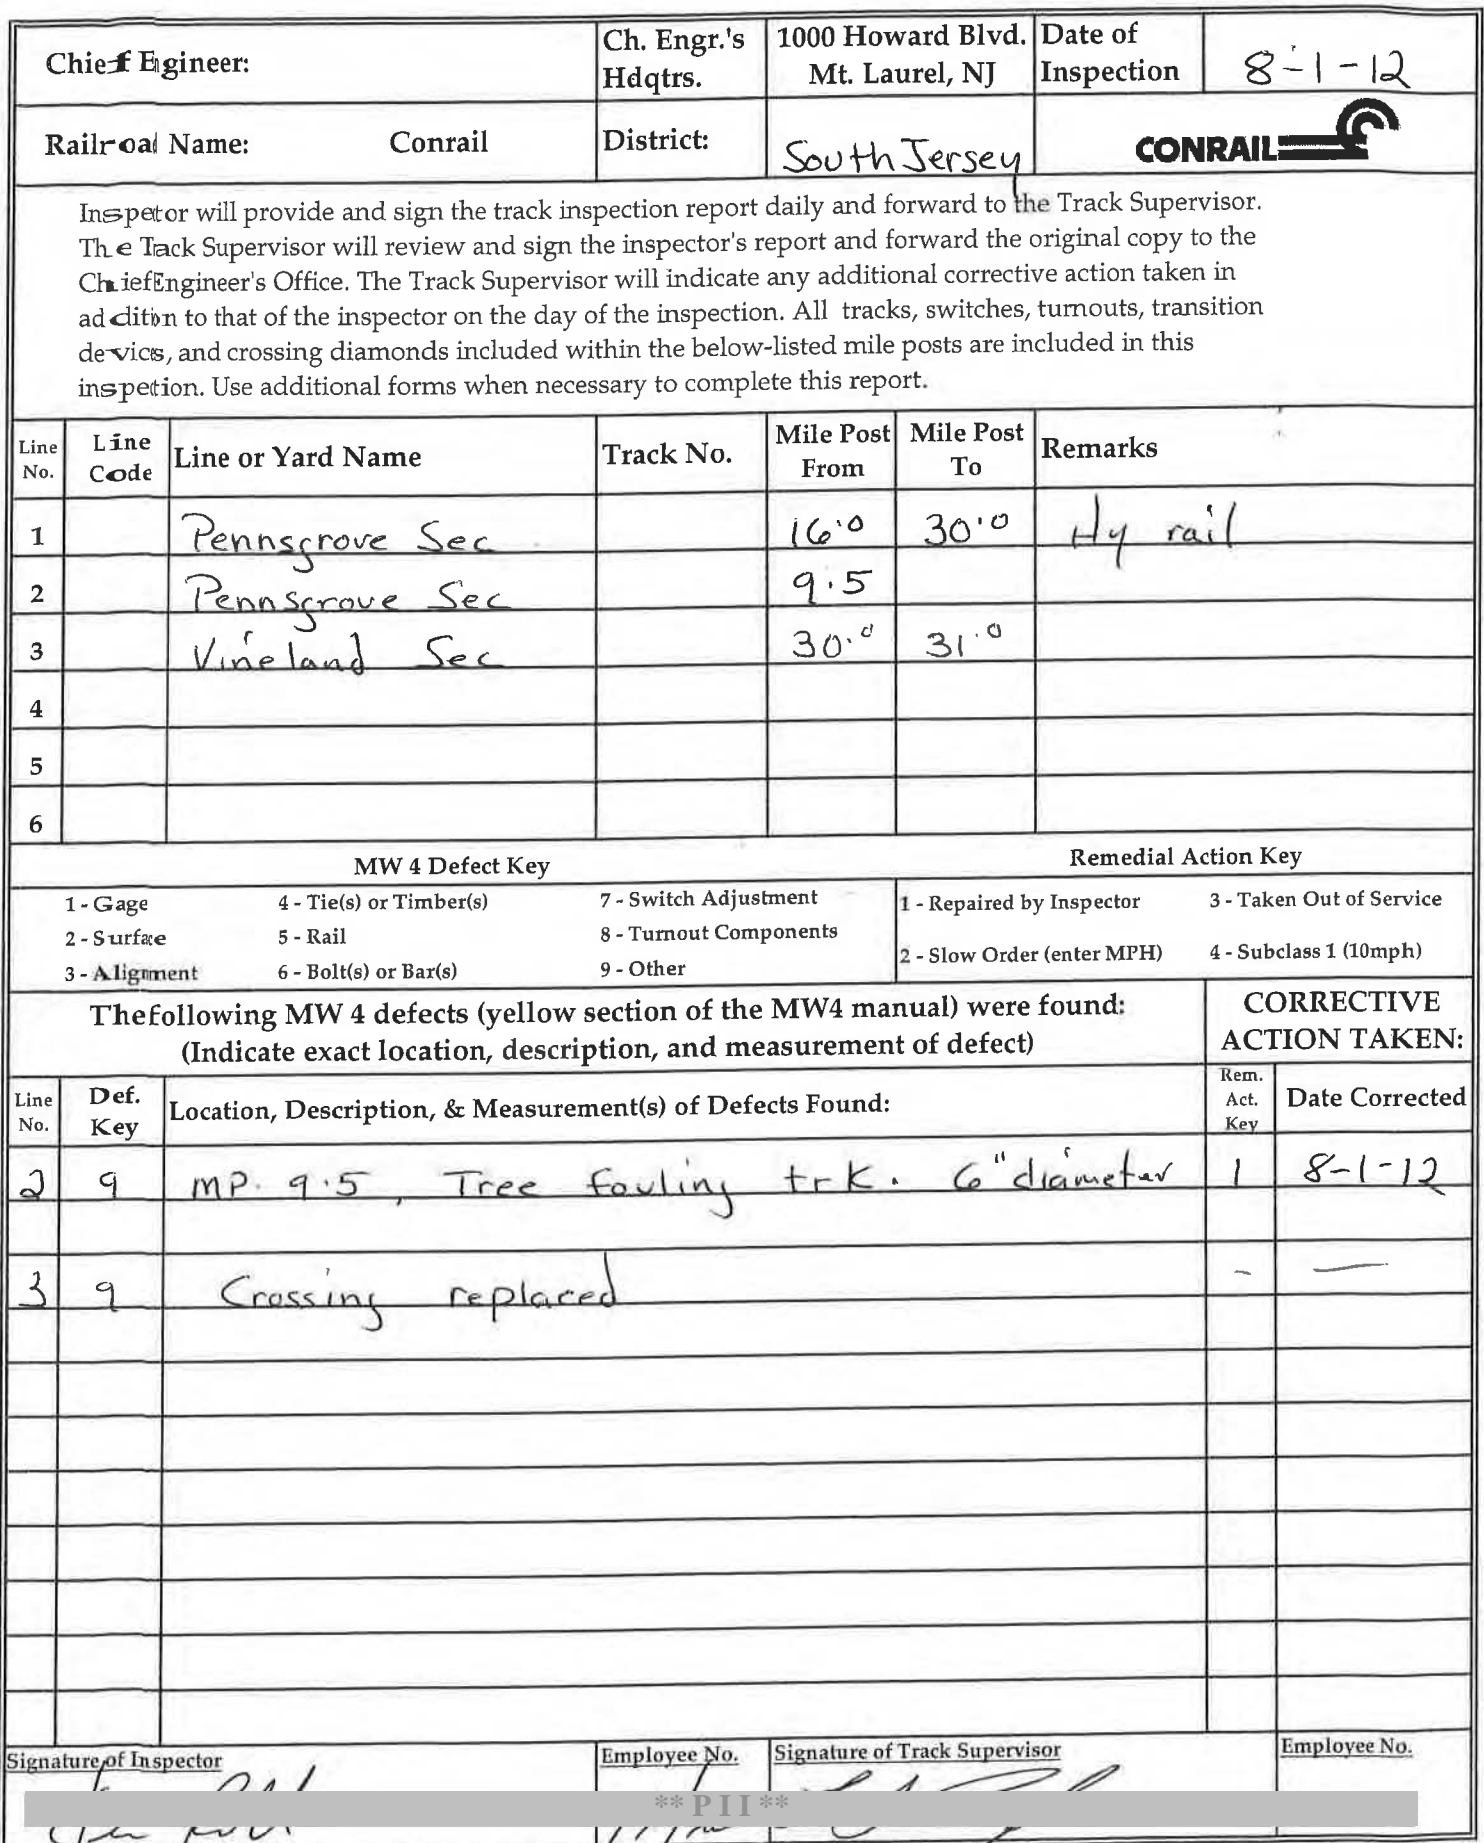 Chief Egineer:
Ch. Engr.'s
Hdqtrs.
1000 Howard Blvd.
Mt. Laurel, NJ
Date of
Inspection
8-1-12
Railroad Name: Conrail
District:
South Jersey
CONRAIL
Inspetor will provide and sign the track inspection report daily and forward to the Track Supervisor.
The Tack Supervisor will review and sign the inspector's report and forward the original copy to the
Chief Engineer's Office. The Track Supervisor will indicate any additional corrective action taken in
addition to that of the inspector on the day of the inspection. All tracks, switches, turnouts, transition
devics, and crossing diamonds included within the below-listed mile posts are included in this
inspetion. Use additional forms when necessary to complete this report.
Line No. Line Code Line or Yard Name Track No. Mile Post From Mile Post To Remarks
1 Pennsgrove Sec 16.0 30.0 Hy rail
2 Pennsgrove Sec 9.5
3 Vineland Sec 30.0 31.0
4
5
6
MW 4 Defect Key
Remedial Action Key
1 - Gage 4 - Tie(s) or Timber(s) 7 - Switch Adjustment 1 - Repaired by Inspector 3 - Taken Out of Service
2 - Surface 5 - Rail 8 - Turnout Components
3 - Alignment 6 - Bolt(s) or Bar(s) 9 - Other 2 - Slow Order (enter MPH) 4 - Subclass 1 (10mph)
The following MW 4 defects (yellow section of the MW4 manual) were found:
(Indicate exact location, description, and measurement of defect)
CORRECTIVE
ACTION TAKEN:
Line No. Def. Key Location, Description, & Measurement(s) of Defects Found: Rem. Act. Key Date Corrected
2 9 MP. 9.5, Tree fouling trk. 6" diameter 1 8-1-12
3 9 Crossing replaced - —
Signature of Inspector Employee No. Signature of Track Supervisor Employee No.
** P I I **